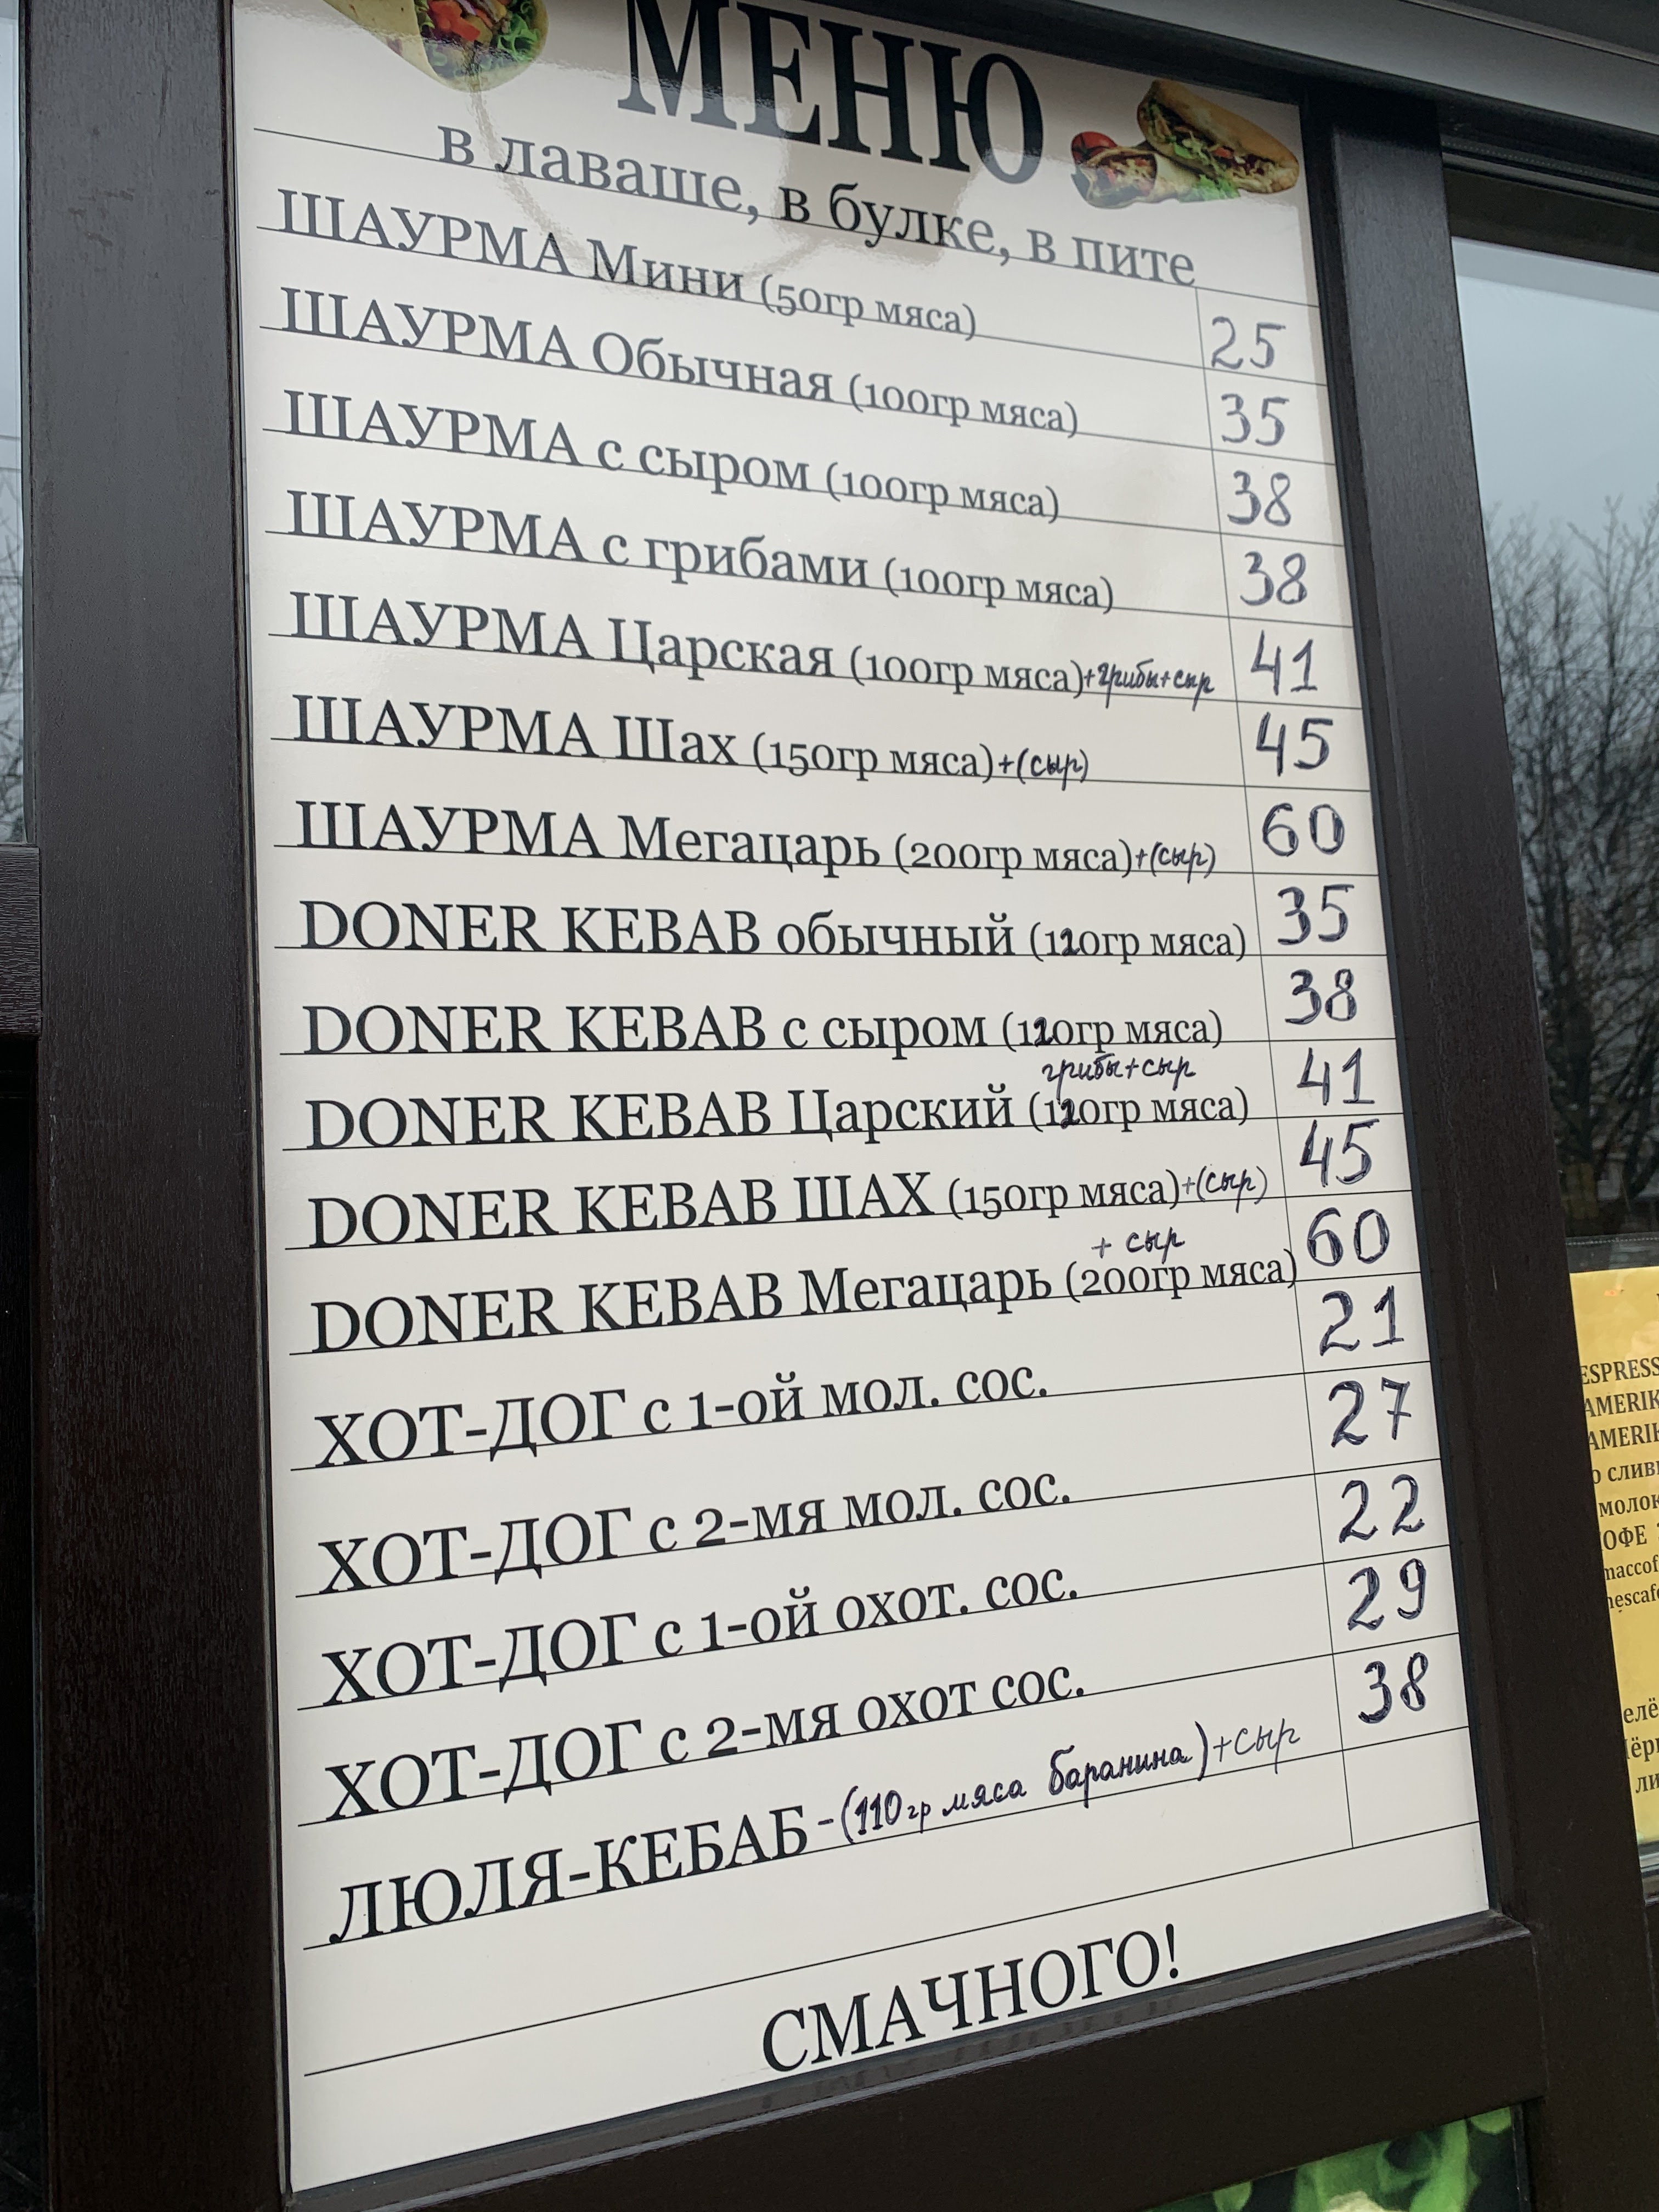 МЕНЮ
в лаваше, в булке, в пите
ШАУРМА Мини (50гр мяса) 25
ШАУРМА Обычная (100гр мяса) 35
ШАУРМА с сыром (100гр мяса) 38
ШАУРМА с грибами (100гр мяса) 38
ШАУРМА Царская (100гр мяса)+грибы+сыр 41
ШАУРМА Шах (150гр мяса)+(сыр) 45
ШАУРМА Мегацарь (200гр мяса)+(сыр) 60
DONER KEBAB обычный (120гр мяса) 35
DONER KEBAB с сыром (120гр мяса) 38
грибы+сыр
DONER KEBAB Царский (120гр мяса) 41
DONER KEBAB ШАХ (150гр мяса)+(сыр) 45
+ сыр
DONER KEBAB Мегацарь (200гр мяса) 60
ХОТ-ДОГ с 1-ой мол. сос. 21
ХОТ-ДОГ с 2-мя мол. сос. 27
ХОТ-ДОГ с 1-ой охот. сос. 22
ХОТ-ДОГ с 2-мя охот сос. 29
ЛЮЛЯ-КЕБАБ-(110гр мяса баранина)+сыр 38
СМАЧНОГО!
ESPRESS
AMERIK
AMERIK
о слив
молок
ОФЕ
maccof
nescafe